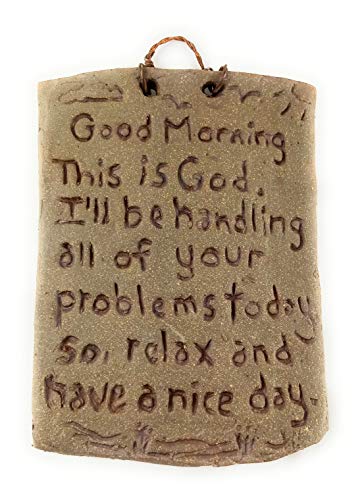 Good Morning
This is God.
I'll be handling
all of your
problems today
so, relax and
have a nice day.